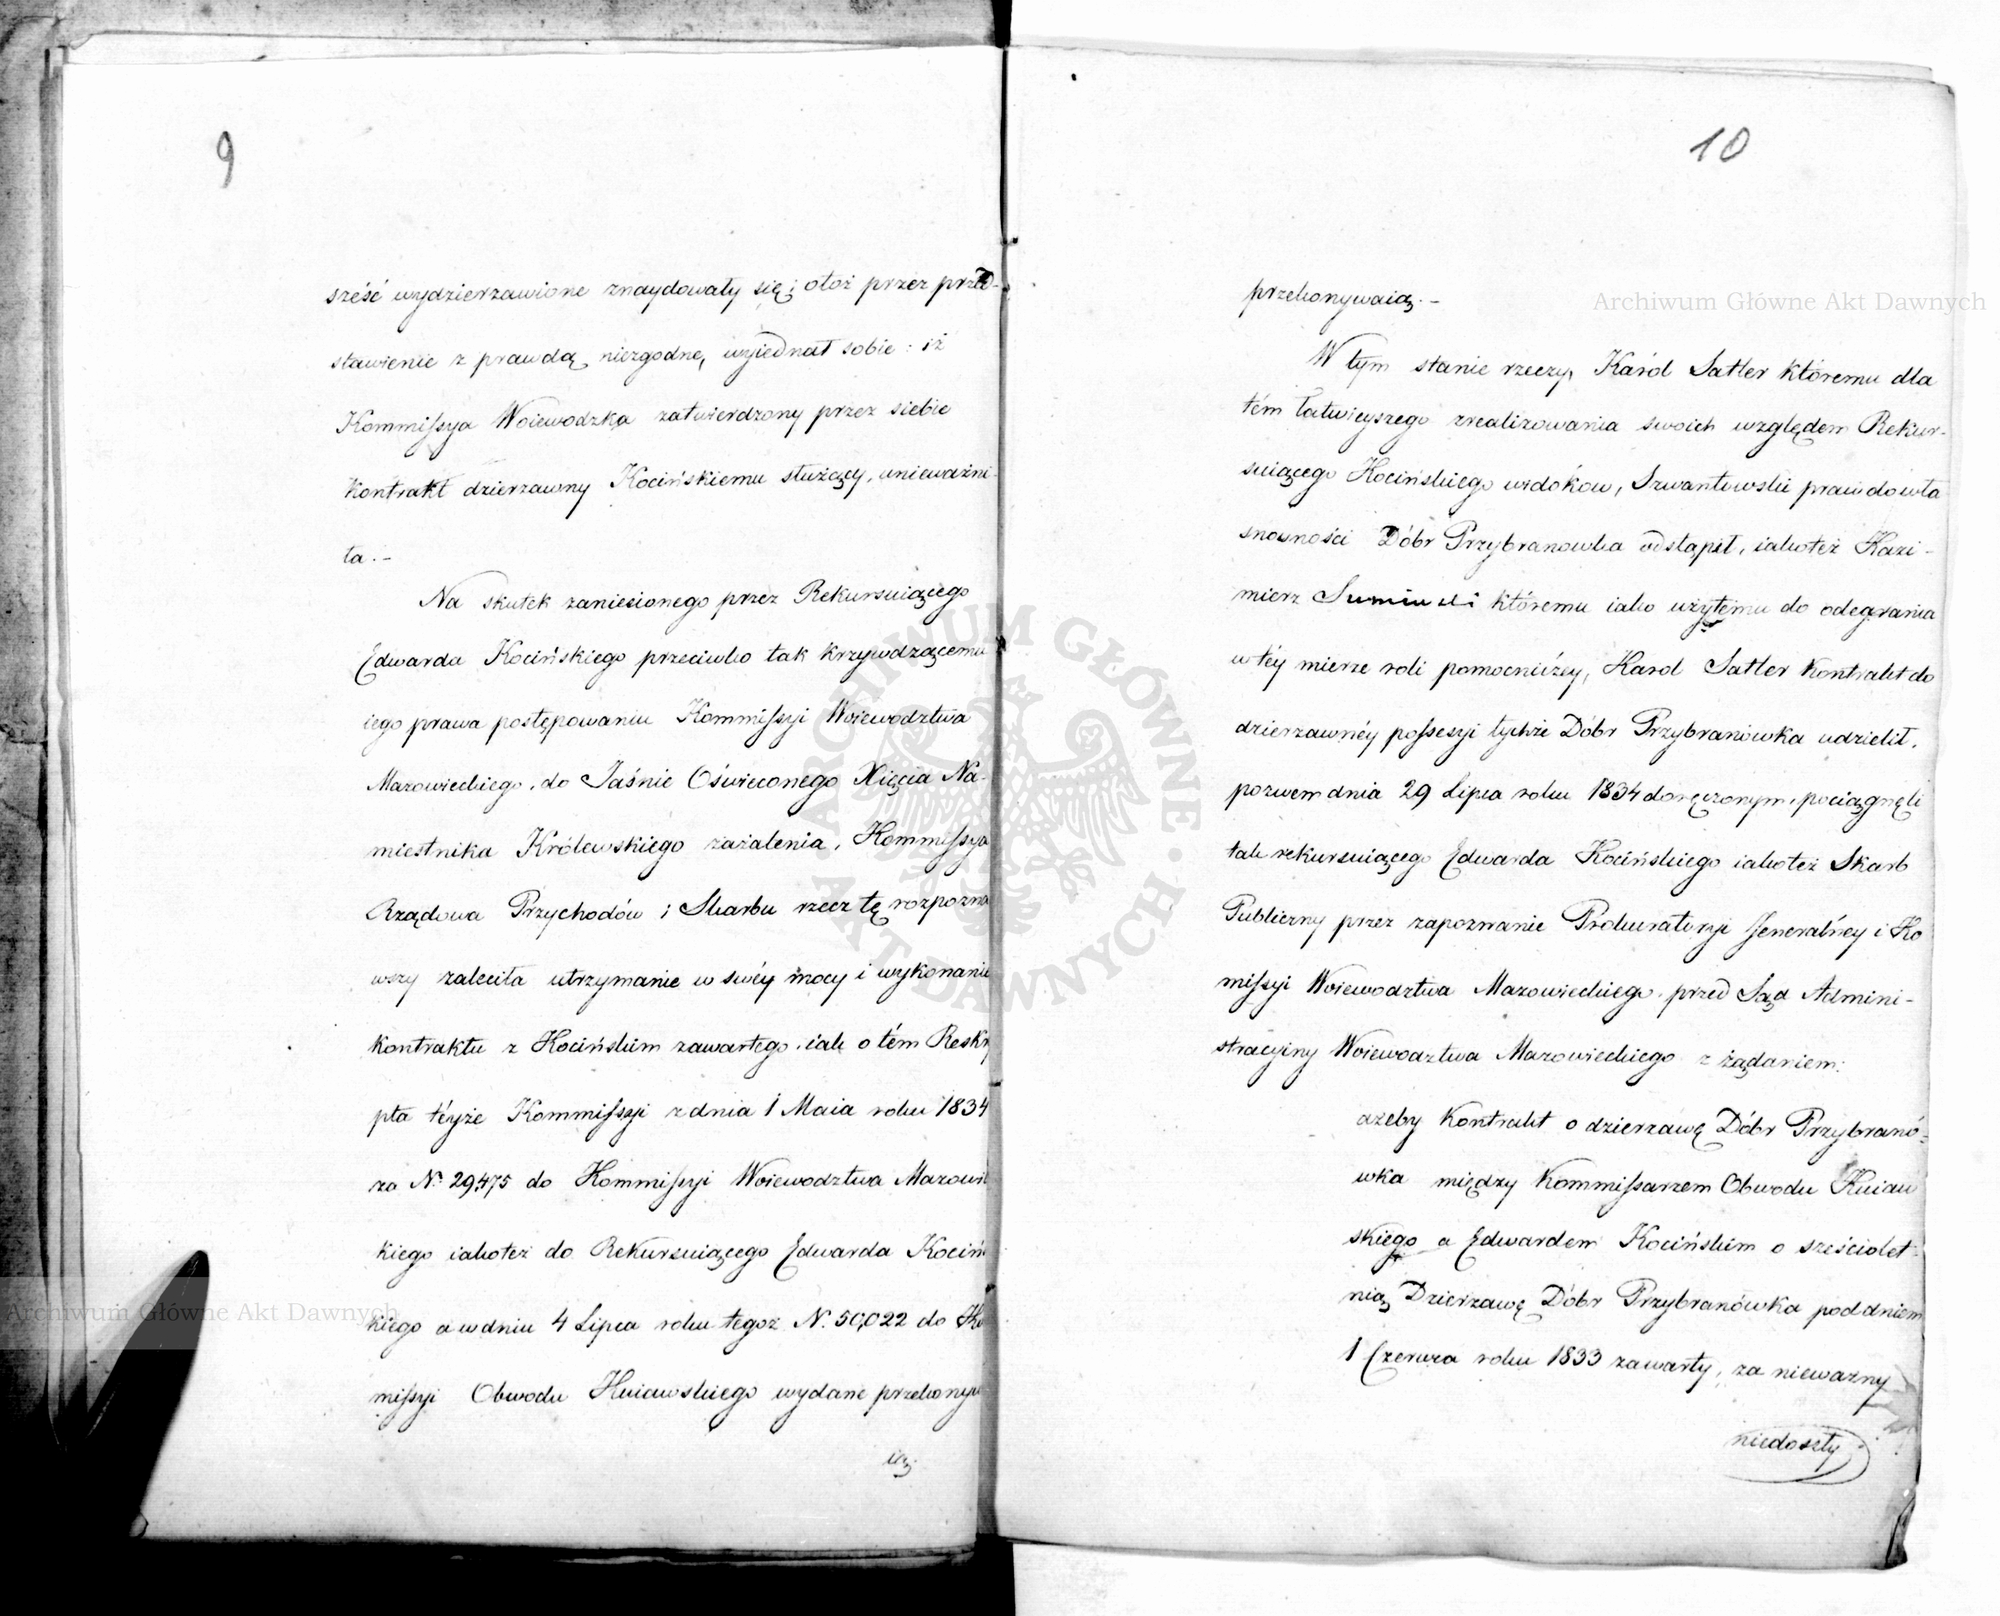 9
sześć wydzierzawione znaydowały się; otoż przez przed-
stawienie z prawdą niezgodne, wyiednał sobie: iż
Kommissya Woiewodzka zatwierdzony przez siebie
kontrakt dzierzawny Kocińskiemu służący, unieważni-
ła.-
Na skutek zaniesionego przez Rekursuiącego
Edwarda Kocińskiego przeciwko tak krzywdzącemu
iego prawa postępowaniu Kommissyi Woiewodztwa
Mazowieckiego, do Jaśnie Oświeconego Xięcia Na-
miestnika Królewskiego zażalenia, Kommissya
Rządowa Przychodów i Skarbu rzecz tę rozpozna
wszy zaleciła utrzymanie w swéy mocy i wykonanie
kontraktu z Kocińskim zawartego, iak o tém Reskry
pta téyże Kommissyi z dnia 1 Maia roku 1834
za N. 29475 do Kommissyi Woiewodztwa Mazowie
kiego iakoteż do Rekursuiącego Edwarda Kocińs
kiego a w dniu 4 Lipca roku tegoż N. 50,022 do Ko
missyi Obwodu Kuiawskiego wydane przekonyw
ią.
10
przekonywaią.-
W tym stanie rzeczy, Karól Satler któremu dla
tém łatwieyszego zrealizowania swoich względem Rekur-
suiącego Kocińskiego widoków, Szwantowski prawdo wła
snowności Dóbr Przybranowka odstąpił, iakoteż Kazi-
mierz Sumiński któremu iako użytému do odegrania
w téy mierze roli pomocniczéy, Karol Satler kontrakt do
dzierzawnéy possesyi tychże Dóbr Przybranówka udzielił,
pozwem dnia 29 Lipca roku 1834 doręczonym, pociągnęli
tak rekursuiącego Edwarda Kocińskiego iakoteż Skarb
Publiczny przez zapozwanie Prokuratoryi Jeneralnéy i Ko
missyi Woiewodztwa Mazowieckiego, przed Sąd Admini-
stracyiny Woiewodztwa Mazowieckiego z żądaniem:
ażeby kontrakt o dzierzawę Dóbr Przybranó-
wka między Kommissarzem Obwodu Kuiaw
skiego a Edwardem Kocińskim o sześciolet-
nią Dzierzawę Dóbr Przybranówka pod dniem
1 Czerwca roku 1833 zawarty, za nieważny
niedoszły
Archiwum Główne Akt Dawnych
Archiwum Główne Akt Dawnych
ARCHIWUM GŁÓWNE AKT DAWNYCH